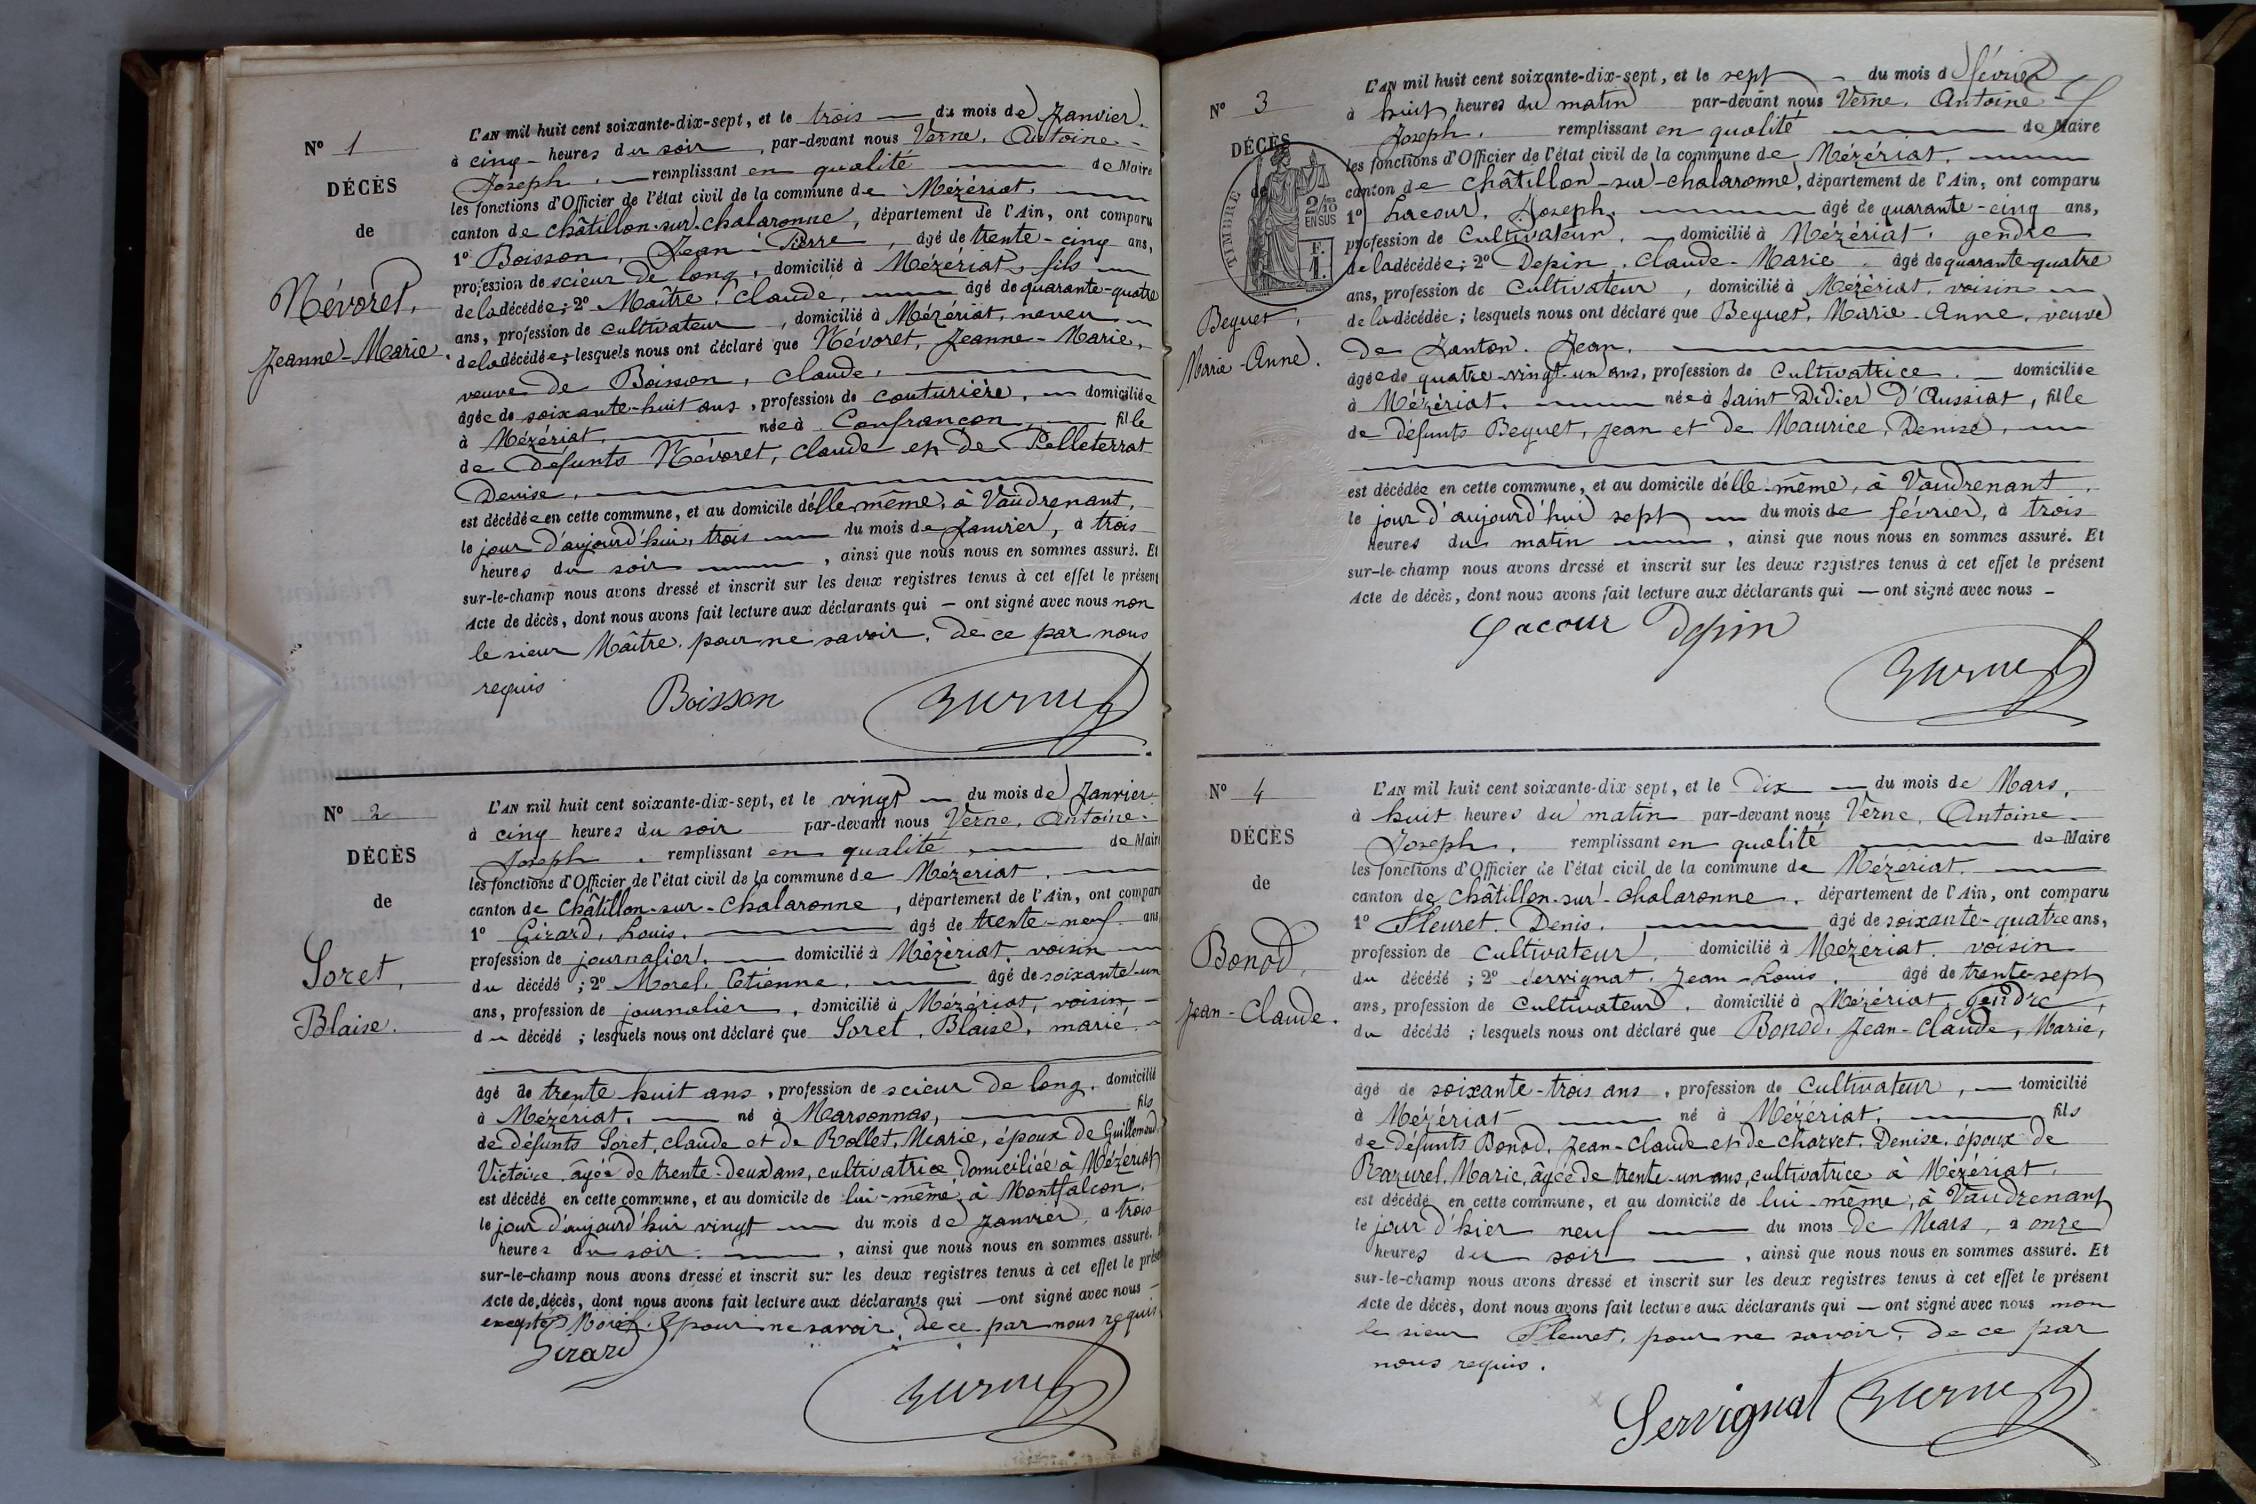 N° 1
DÉCÈS
de
Névoret,
Jeanne-Marie.
L'AN mil huit cent soixante-dix-sept, et le trois du mois de Janvier.
à cinq heures du soir, par-devant nous Verne, Antoine-
Joseph, remplissant en qualité de Maire
les fonctions d'Officier de l'état civil de la commune de Mézériat,
canton de Châtillon-sur-Chalaronne, département de l'Ain, ont comparu
1° Boisson, Jean-Pierre, âgé de trente-cinq ans,
profession de scieur de long, domicilié à Mézériat, fils
de la décédée; 2° Maître, Claude, âgé de quarante-quatre
ans, profession de cultivateur, domicilié à Mézériat, neveu
de la décédée; lesquels nous ont déclaré que Névoret, Jeanne-Marie,
veuve de Boisson, Claude,
âgée de soixante-huit ans, profession de couturière, domiciliée
à Mézériat, née à Confrançon, fille
de défunts Névoret, Claude et de Pelleterrat
Denise,
est décédée en cette commune, et au domicile d'elle même, à Vaudrenant,
le jour d'aujourd'hui, trois du mois de Janvier, à trois
heures du soir, ainsi que nous nous en sommes assuré. Et
sur-le-champ nous avons dressé et inscrit sur les deux registres tenus à cet effet le présent
Acte de décès, dont nous avons fait lecture aux déclarants qui — ont signé avec nous non
le sieur Maître, pour ne savoir, de ce par nous
requis
Boisson Verne
N° 2
DÉCÈS
de
Loret,
Blaise.
L'AN mil huit cent soixante-dix-sept, et le vingt du mois de Janvier
à cinq heures du soir par-devant nous Verne, Antoine-
Joseph, remplissant en qualité de Maire
les fonctions d'Officier de l'état civil de la commune de Mézériat,
canton de Châtillon-sur-Chalaronne, département de l'Ain, ont comparu
1° Girard, Louis, âgé de trente-neuf ans
profession de journalier, domicilié à Mézériat, voisin
du décédé; 2° Morel, Etienne, âgé de soixante-un
ans, profession de journalier, domicilié à Mézériat, voisin
du décédé; lesquels nous ont déclaré que Loret, Blaise, marié,
âgé de trente huit ans, profession de scieur de long, domicilié
à Mézériat, né à Marsonnas, fils
de défunts Loret, Claude et de Rollet, Marie, époux de Guillemaud
Victoire, âgée de trente-deux ans, cultivatrice, domiciliée à Mézériat
est décédé en cette commune, et au domicile de lui-même, à Montfalcon,
le jour d'aujourd'hui vingt du mois de Janvier, à trois
heures du soir, ainsi que nous nous en sommes assuré.
sur-le-champ nous avons dressé et inscrit sur les deux registres tenus à cet effet le présent
Acte de décès, dont nous avons fait lecture aux déclarants qui — ont signé avec nous —
excepté Morel, pour ne savoir, de ce par nous requis
Girard
Verne
N° 3
DÉCÈS
de
TIMBRE
2/10 EN SUS
F. 1.
Beguet,
Marie-Anne.
L'AN mil huit cent soixante-dix-sept, et le sept du mois de février
à huit heures du matin par-devant nous Verne, Antoine
Joseph, remplissant en qualité de Maire
les fonctions d'Officier de l'état civil de la commune de Mézériat,
canton de Châtillon-sur-Chalaronne, département de l'Ain, ont comparu
1° Lacour, Joseph, âgé de quarante-cinq ans,
profession de cultivateur, domicilié à Mézériat, gendre
de la décédée; 2° Depin, Claude-Marie, âgé de quarante-quatre
ans, profession de cultivateur, domicilié à Mézériat, voisin
de la décédée; lesquels nous ont déclaré que Beguet, Marie-Anne, veuve
de Janton, Jean,
âgée de quatre-vingt-un ans, profession de cultivatrice, domiciliée
à Mézériat, née à Saint Didier d'Aussiat, fille
de défunts Beguet, Jean et de Maurice, Denise,
est décédée en cette commune, et au domicile d'elle-même, à Vaudrenant,
le jour d'aujourd'hui sept du mois de février, à trois
heures du matin, ainsi que nous nous en sommes assuré. Et
sur-le-champ nous avons dressé et inscrit sur les deux registres tenus à cet effet le présent
Acte de décès, dont nous avons fait lecture aux déclarants qui — ont signé avec nous —
Lacour Depin
Verne
N° 4
DÉCÈS
de
Bonod,
Jean-Claude.
L'AN mil huit cent soixante-dix-sept, et le dix du mois de Mars,
à huit heures du matin par-devant nous Verne, Antoine-
Joseph, remplissant en qualité de Maire
les fonctions d'Officier de l'état civil de la commune de Mézériat,
canton de Châtillon-sur-Chalaronne, département de l'Ain, ont comparu
1° Fleuret, Denis, âgé de soixante-quatre ans,
profession de cultivateur, domicilié à Mézériat, voisin
du décédé; 2° Servignat, Jean-Louis, âgé de trente-sept
ans, profession de cultivateur, domicilié à Mézériat, gendre,
du décédé; lesquels nous ont déclaré que Bonod, Jean-Claude, Marié,
âgé de soixante-trois ans, profession de cultivateur, domicilié
à Mézériat né à Mézériat, fils
de défunts Bonod, Jean-Claude et de Charvet, Denise, époux de
Razurel, Marie, âgée de trente-un ans, cultivatrice à Mézériat,
est décédé en cette commune, et au domicile de lui-même, à Vaudrenant
le jour d'hier neuf du mois de Mars, à onze
heures du soir, ainsi que nous nous en sommes assuré. Et
sur-le-champ nous avons dressé et inscrit sur les deux registres tenus à cet effet le présent
Acte de décès, dont nous avons fait lecture aux déclarants qui — ont signé avec nous non
le sieur Fleuret, pour ne savoir, de ce par
nous requis.
Servignat Verne